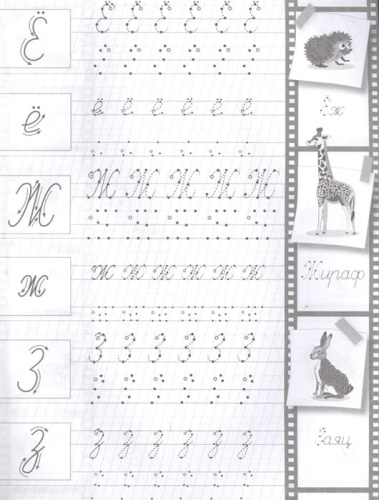 Ё Ё Ё Ё Ё Ё Ё
ё ё ё ё ё ё ё
Ёж
Ж Ж Ж Ж Ж Ж Ж
ж ж ж ж ж ж ж
Жираф
З З З З З З З
з з з з з з з
Заяц